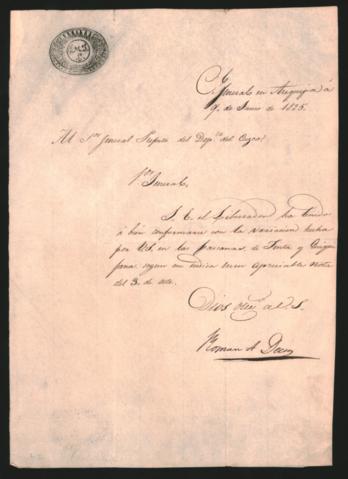 C. General en Arequipa á
9. de Junio de 1825.
Al Sor General Prefecto del Depto del Cuzco.
Sor General.
S. E. el Libertador ha tenido
á bien conformarse con la variacion hecha
por US. en las de Tinta y
segun me indica en su apreciable nota
del 3. de este.
Dios gue á US.